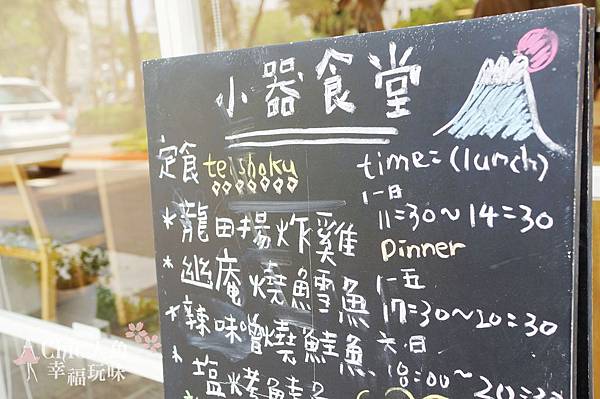 小器食堂
定食 teishoku
*龍田揚炸雞
*幽庵燒鱈魚
*辣味噌燒鮭魚
*塩烤鯖魚
time=(lunch)
一~日
11=30~14=30
Dinner
一~五
17=30~20=30
六.日
18:00~20=30
幸福玩味